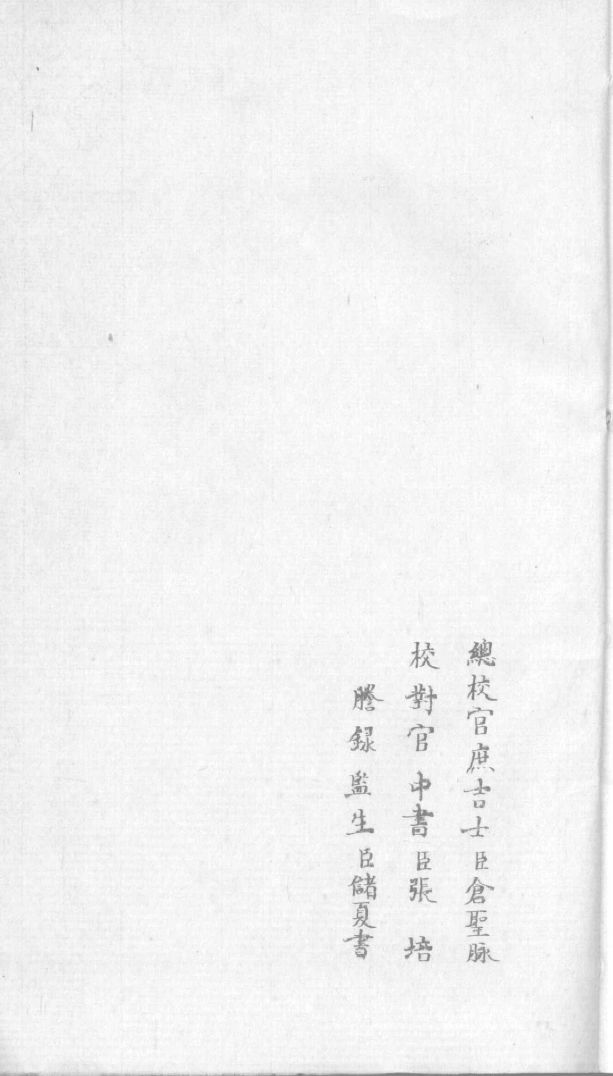 總校官庶吉士臣倉聖脉
校對官中書臣張培
謄録監生臣儲夏書